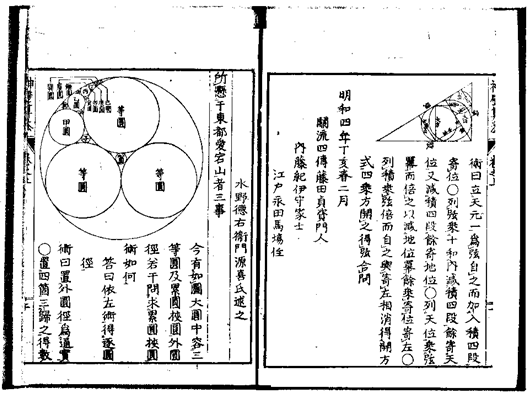 術曰立天元一爲弦自之而加入積四段
寄位○列弦乘于和內減積四段餘寄天
位又減積四段餘寄地位○列天位乘弦
冪而倍之以減地位冪餘乘寄位寄左○
列積乘弦倍而自之與寄左相消得開方
式四乘方開之得弦合問
明和四年丁亥春二月
關流四傳藤田貞資門人
內藤紀伊守家士
江戶永田馬場住
水野德右衞門源喜氏述之
所懸于東都愛宕山者三事
等圓
甲圓
等圓
等圓
今有如圖大圓中容三
等圓及累圓挾圓外圓
徑若干問求累圓挾圓
術如何
答曰依左術得逐圓
徑
術曰置外圓徑爲逼實
○置四箇三歸之得數